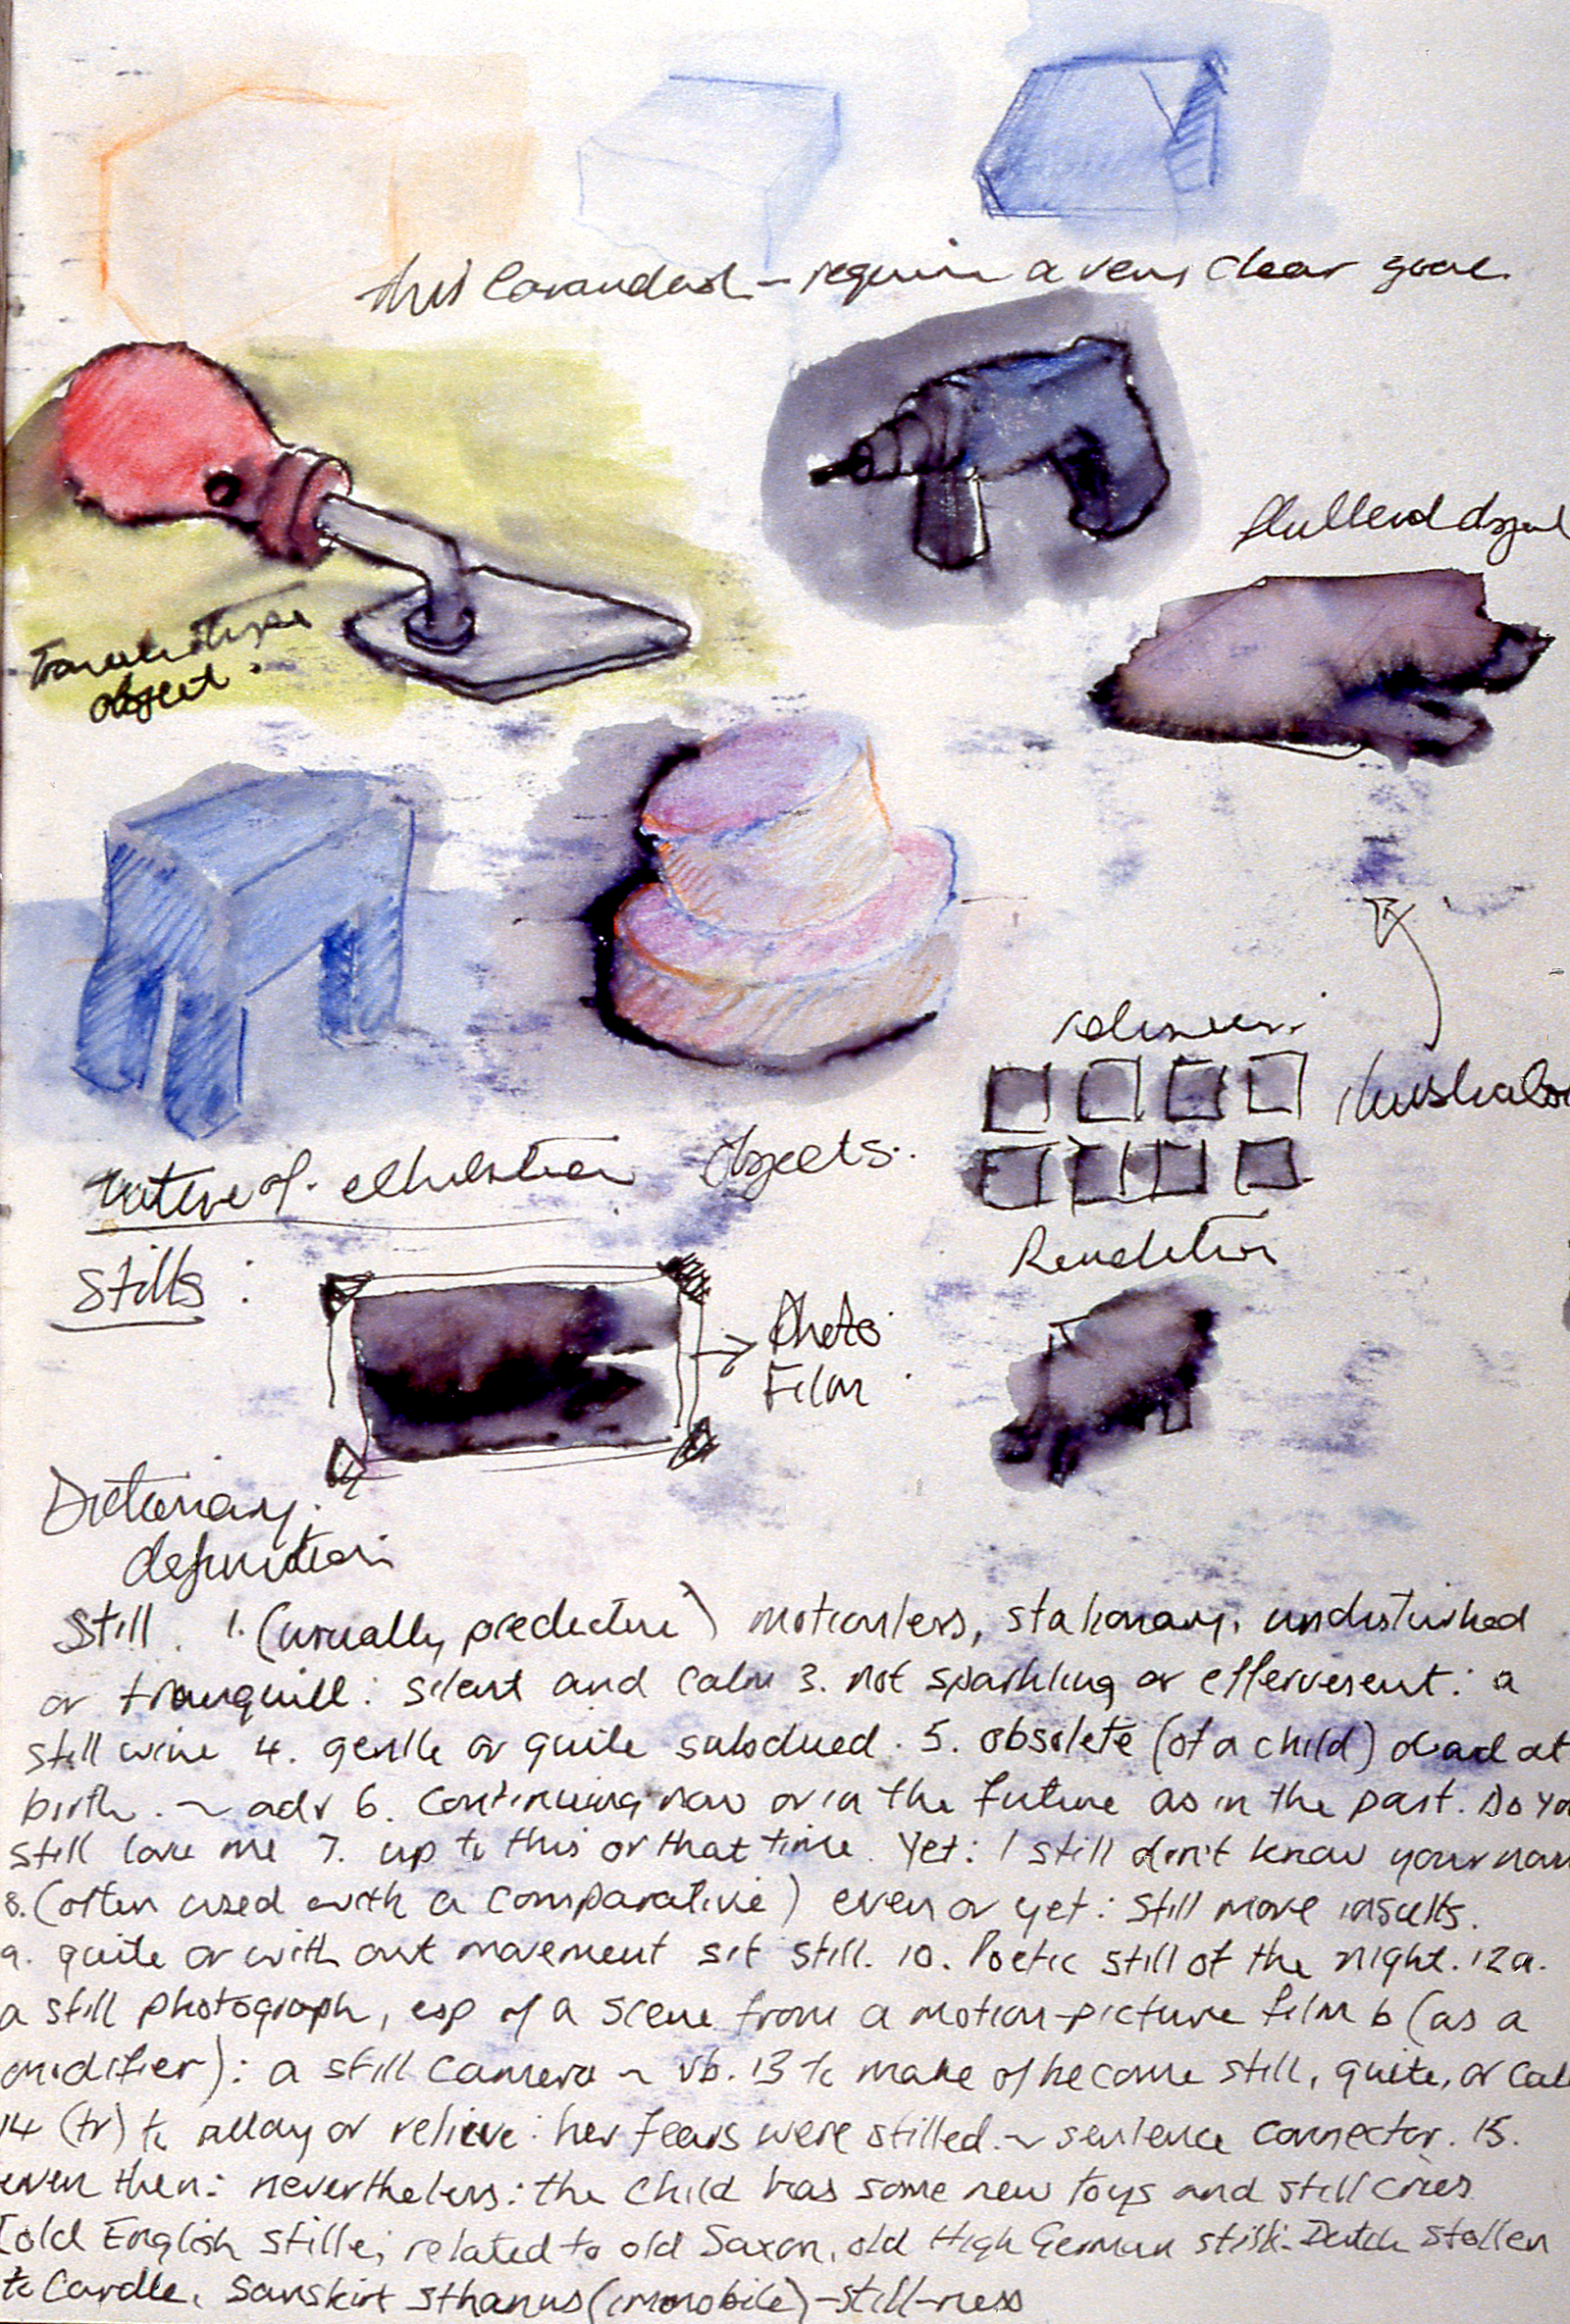 this - require a very clear goal.
object.
nature of objects..
Stills :
→ Photo
Film
Rendition
Dictionary.
definition
Still. 1. (usually predicture) motionless, stationary, undisturbed
or tranquill: silent and calm 3. not sparkling or effervesent: a
still wine 4. gentle or quite subdued. 5. obsolete (of a child) dead at
birth. ~ adv 6. Continuing now or in the future as in the past. Do You
still love me 7. up to this or that time. Yet: I still don't know your nam
8. (often used with a comparative) even or yet: still more insults.
9. quite or with out movement sit still. 10. Poetic still of the night. 12a.
a still photograph, esp of a scene from a motion-picture film b (as a
modifier): a still camera ~ vb. 13 to make of become still, quite, or cal
14 (tr) to allay or relieve: her fears were stilled. ~ sentence connector. 15.
even then: nevertheless: the child has some new toys and still cries
[old English stille; related to old Saxon, old High German stilli. Dutch stollen
to Curdle, Sanskirt sthanus (immobile) -still-ness